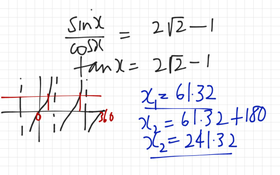 sinx/cosx = 2√2 − 1
tanx = 2√2 − 1
x₁ = 61.32
x₂ = 61.32 + 180
x₂ = 241.32
0 360